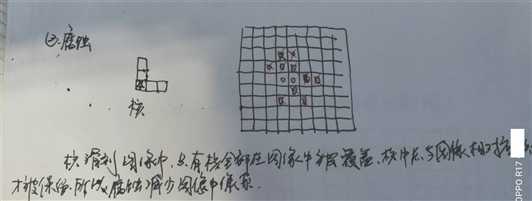 ②.腐蚀
核
核滑到图像中,只有核全部在图像中能覆盖,核中心与图像相对
才被保留.所以腐蚀减少图像中像素.
OPPO R17